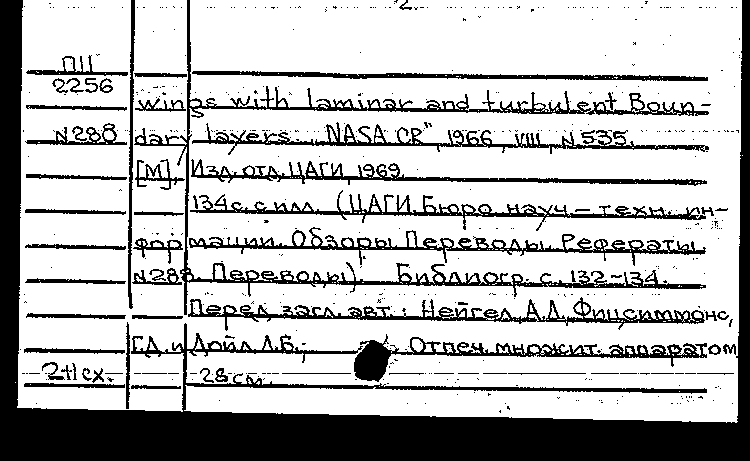 2.
ПII
2256
wings with laminar and turbulent Boun-
N288 dary layers. „NASA CR", 1966, VIII, N 535.
[М], Изд. отд. ЦАГИ, 1969.
134 с. с илл. (ЦАГИ. Бюро науч-техн. ин-
формации. Обзоры. Переводы. Рефераты.
N288. Переводы). Библиогр. с. 132-134.
Перед загл. авт.: Нейгел А.Л, Фицсиммонс,
Г.Д. и Дойл Л.Б.; Отпеч. множит. аппаратом
2тсх. 28 см.